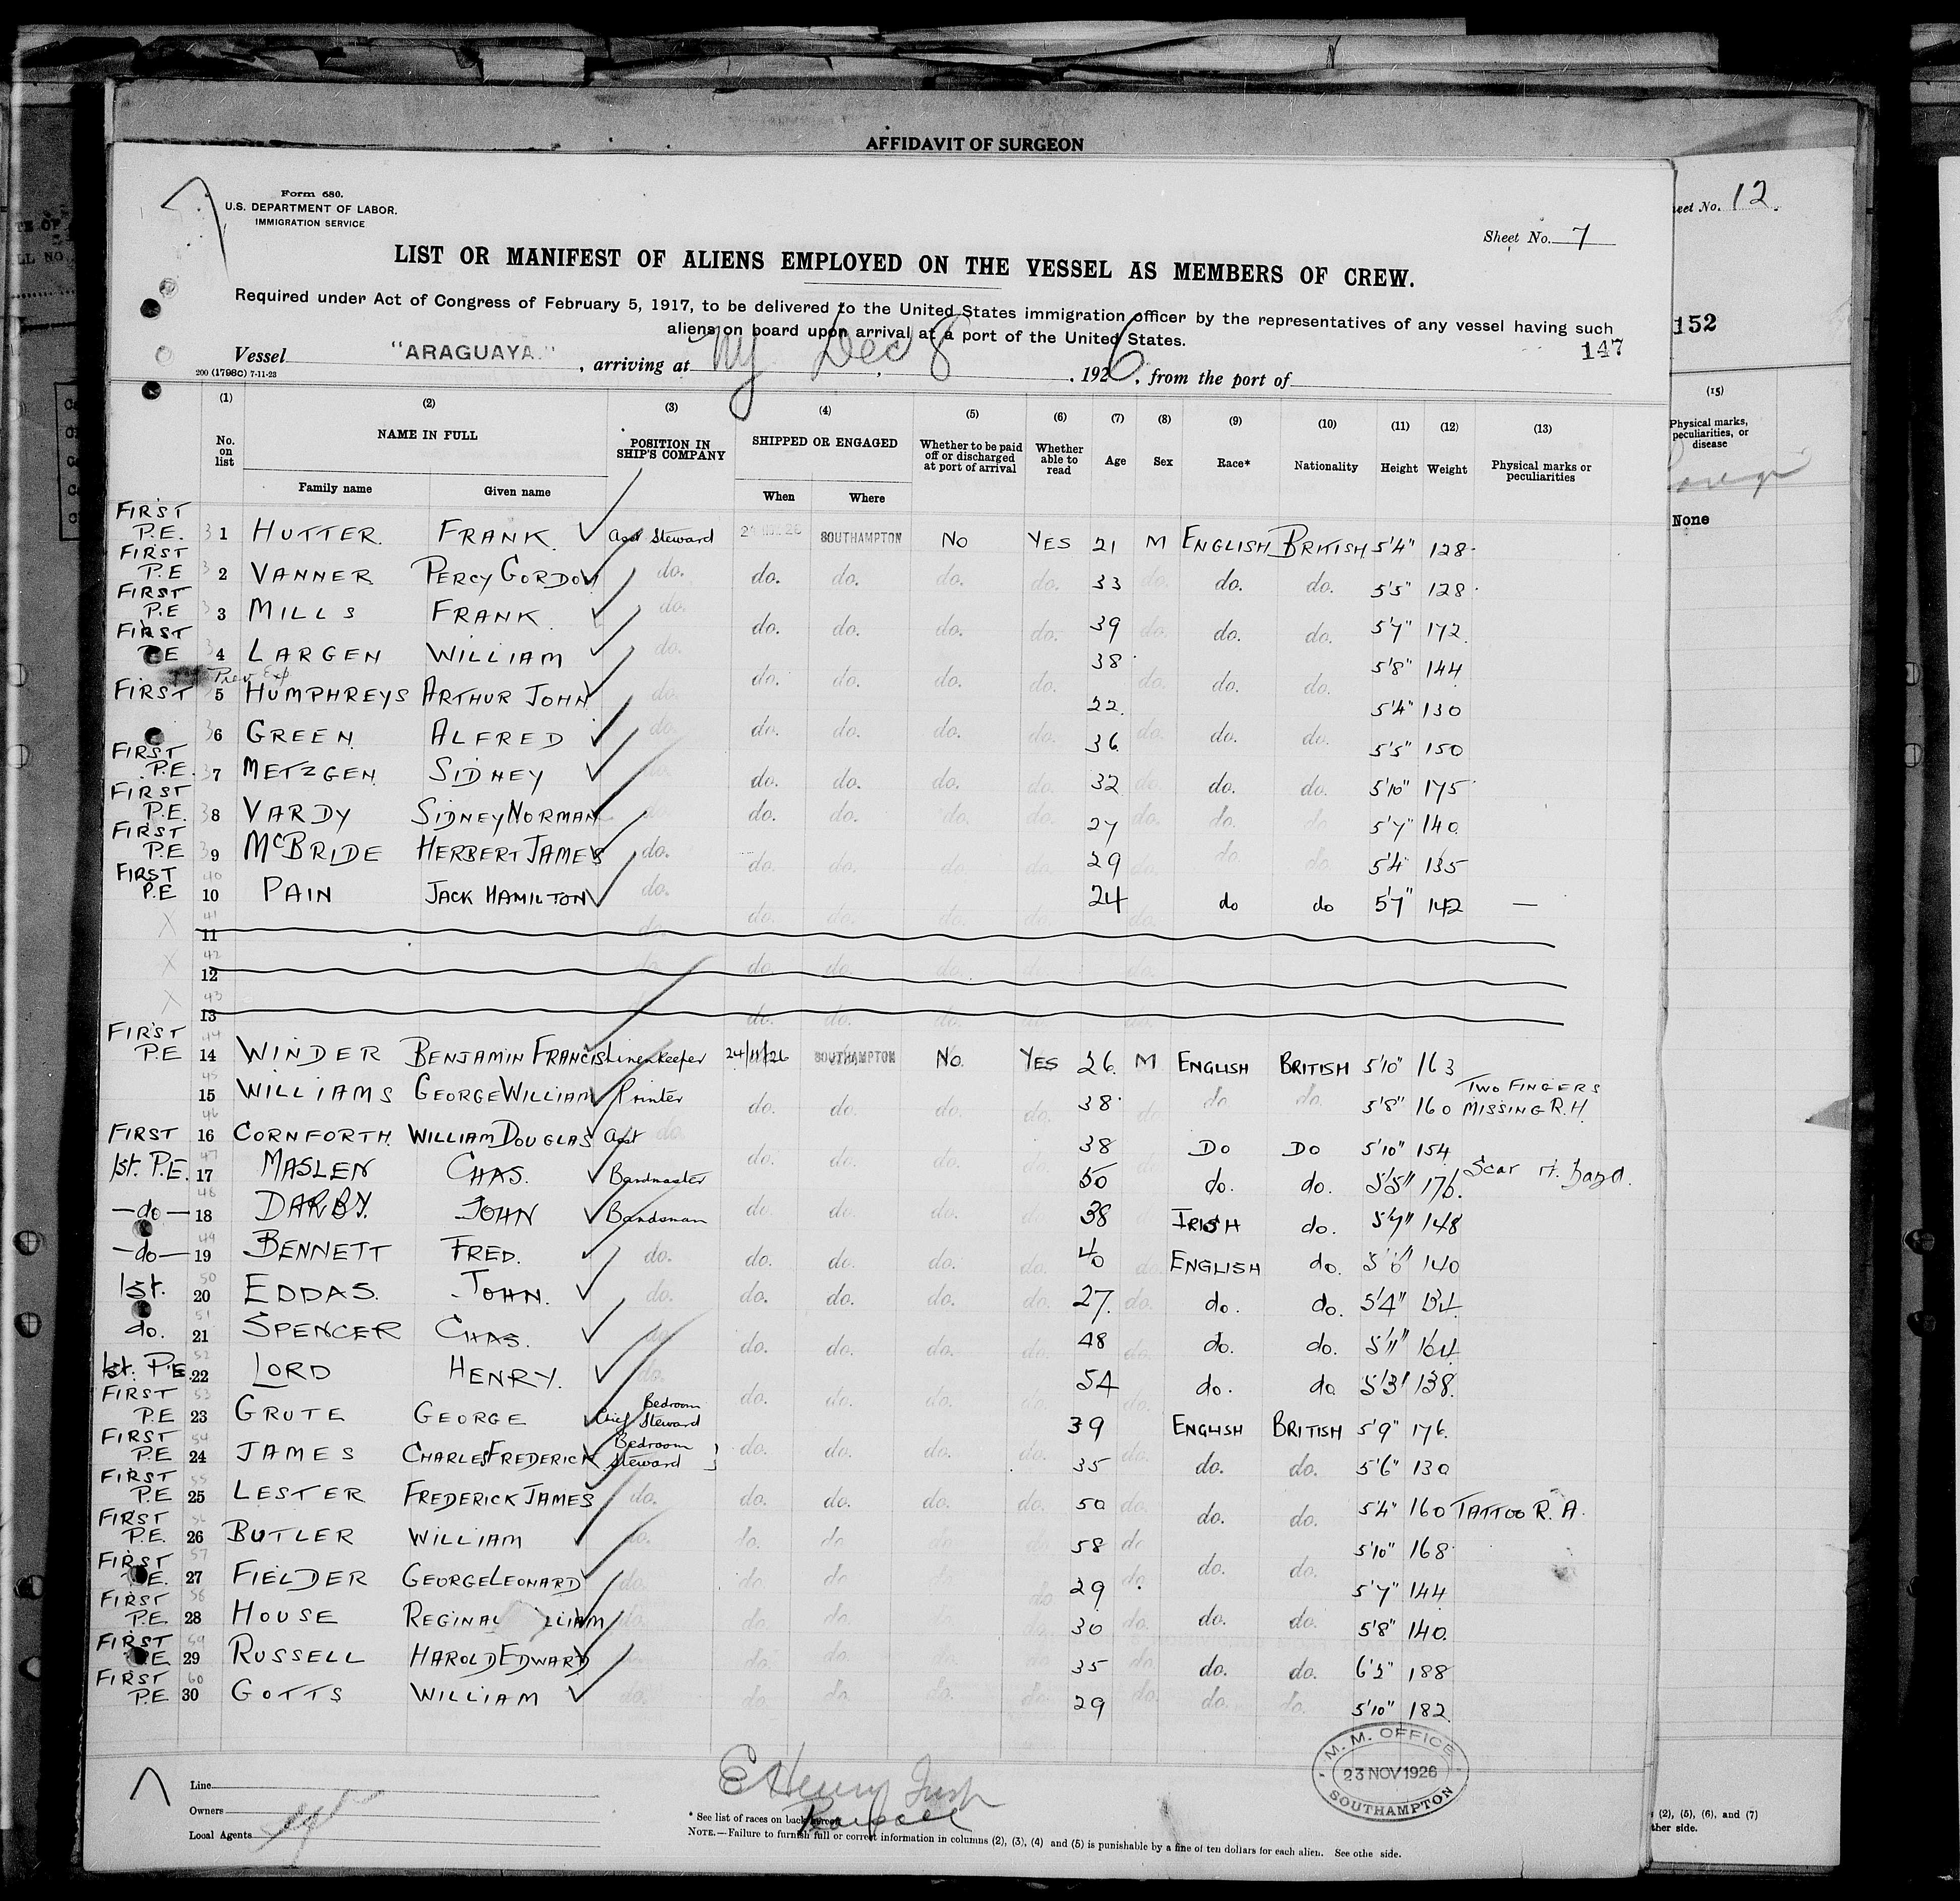 AFFIDAVIT OF SURGEON
Form 680.
U.S. DEPARTMENT OF LABOR.
IMMIGRATION SERVICE
Sheet No. 7
Sheet No. 12
LIST OR MANIFEST OF ALIENS EMPLOYED ON THE VESSEL AS MEMBERS OF CREW.
Required under Act of Congress of February 5, 1917, to be delivered to the United States immigration officer by the representatives of any vessel having such
aliens on board upon arrival at a port of the United States.
152
147
Vessel "ARAGUAYA." , arriving at NY Dec 8 , 1926, from the port of
200 (1798C) 7-11-23
(1) (2) (3) (4) (5) (6) (7) (8) (9) (10) (11) (12) (13) (15)
No. on list NAME IN FULL POSITION IN SHIP'S COMPANY SHIPPED OR ENGAGED Whether to be paid off or discharged at port of arrival Whether able to read Age Sex Race* Nationality Height Weight Physical marks or peculiarities
Physical marks, peculiarities, or disease
Family name Given name When Where
None
FIRST P.E. 1 HUTTER. FRANK. Asst Steward SOUTHAMPTON NO YES 21 M ENGLISH BRITISH 5'4" 128
FIRST P.E 2 VANNER PERCY GORDON do. do. do. do. do. 33 do. do. do. 5'5" 128
FIRST P.E 3 MILLS FRANK do. do. do. do. do. 39 do. do. do. 5'7" 172
FIRST P.E 4 LARGEN WILLIAM do. do. do. do. do. 38 do. do. do. 5'8" 144
Prev Exp
FIRST 5 HUMPHREYS ARTHUR JOHN do. do. do. do. do. 22 do. do. do. 5'4" 130
6 GREEN ALFRED do. 36 5'5" 150
FIRST P.E. 7 METZGEN SIDNEY do. do. do. do. do. 32 do. do. do. 5'10" 175
FIRST P.E. 8 VARDY SIDNEY NORMAN do. do. do. do. do. 27 do. do. do. 5'7" 140
FIRST P.E 9 McBRIDE HERBERT JAMES do. do. do. do. do. 29 do. do. do. 5'4" 135
FIRST P.E 10 PAIN JACK HAMILTON do. do. do. do. do. 24 do. do do 5'7" 142 —
11
12
13
FIRST P.E 14 WINDER BENJAMIN FRANCIS Linenkeeper 24/11/26 SOUTHAMPTON NO. YES 26 M ENGLISH BRITISH 5'10" 163
15 WILLIAMS GEORGE WILLIAM Printer do. do. do. do. 38 do. do do. 5'8" 160 TWO FINGERS MISSING R.H
FIRST 16 CORNFORTH. WILLIAM DOUGLAS Asst do. do. do. do. do. 38 do. DO DO 5'10" 154
1st. P.E. 17 MASLEN CHAS. Bandmaster 50 do. do. 5'5" 176. Scar rt. hand.
—do— 18 DARBY. JOHN Bandsman do. do. do. do. 38 do. IRISH do. 5'7" 148
—do— 19 BENNETT FRED. do. do. do. do. do. 40 do. ENGLISH do. 140
1st. 20 EDDAS. JOHN. do. do. do. do. do. 27. do. do. do. 5'4" 134
do. 21 SPENCER CHAS. do. do. do. do. do. 48 do. do. do. 5'11" 164
1st. P.E. 22 LORD HENRY. do. 54 do. do 5'3" 138.
FIRST P.E 23 GRUTE GEORGE Chief Bedroom Steward do. do. do. do. 39 do. ENGLISH BRITISH 5'9" 176.
FIRST P.E 24 JAMES CHARLES FREDERICK Bedroom Steward do. do. do. do. 35 do. do. do. 5'6" 130
FIRST P.E 25 LESTER FREDERICK JAMES do. do. do. do. do. 50 do. do. do. 5'4" 160 TATTOO R. A.
FIRST P.E. 26 BUTLER WILLIAM do. do. do 58 do 5'10" 168
FIRST P.E. 27 FIELDER GEORGE LEONARD do. do. do do 29 do. do. do. 5'7" 144
FIRST P.E. 28 HOUSE REGINAL LLIAM do. do. do. 30 do. do. do. 5'8" 140.
FIRST P.E 29 RUSSELL HAROLD EDWARD do. do. 35 do. do. do. 188
FIRST P.E. 30 GOTTS WILLIAM do. do. do. 29 do. do. do. 5'10" 182
M. M. OFFICE
23 NOV 1926
SOUTHAMPTON
Line
Owners
Local Agents
E Henry
* See list of races on back hereof.
NOTE.—Failure to furnish full or correct information in columns (2), (3), (4) and (5) is punishable by a fine of ten dollars for each alien. See othe side.
(2), (5), (6), and (7)
ther side.